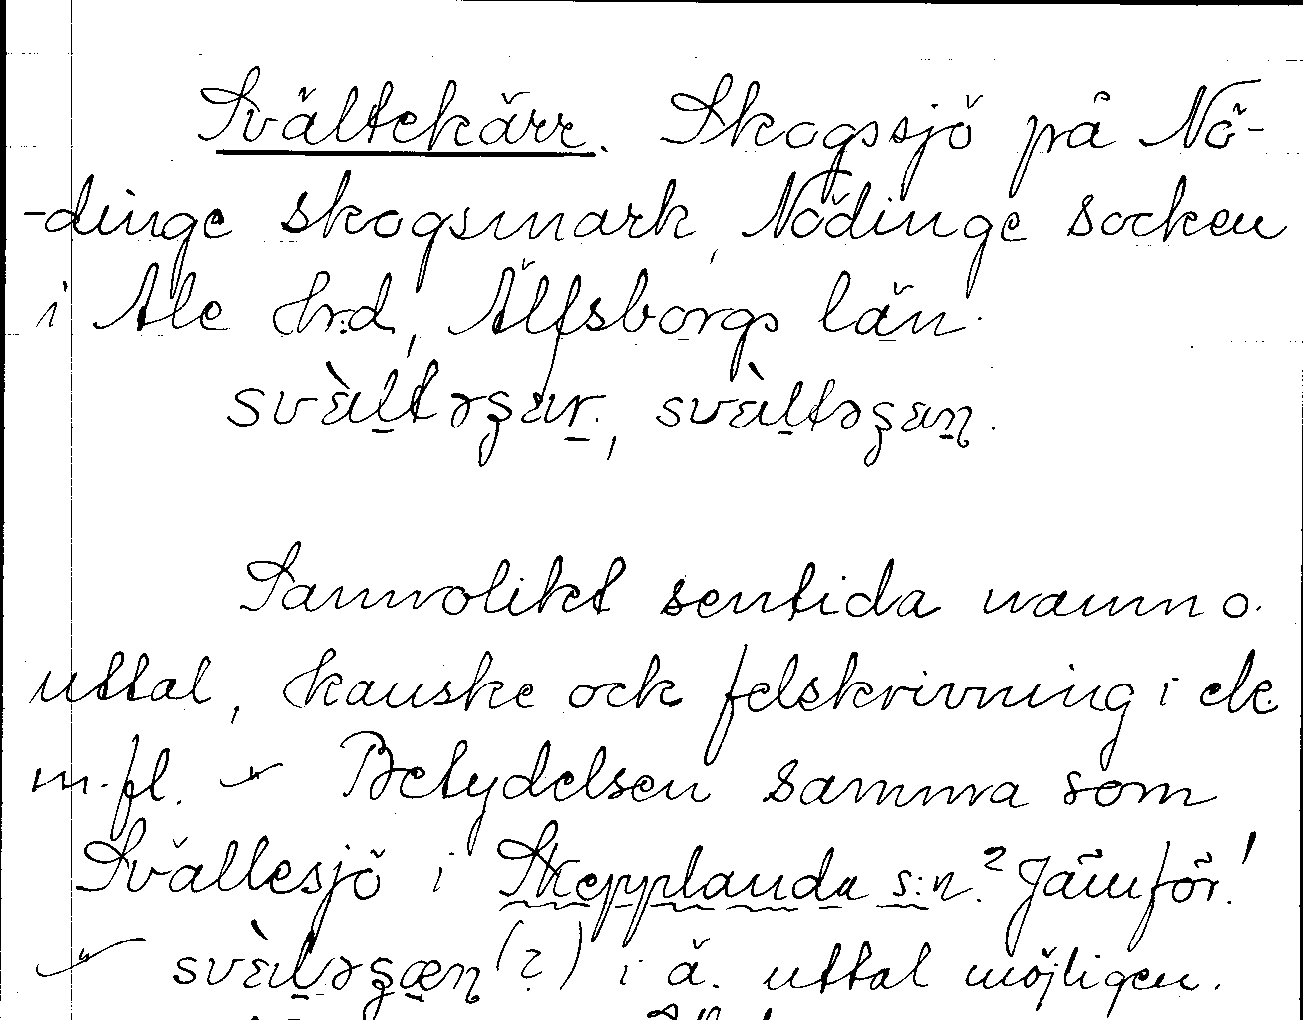 Svältekärr. Skogssjö på Nö-
-dinge skogsmark, Nödinge socken
i Ale hrd, Älfsborgs län.
svὲltəʂɛr., svὲltəʂɛn.
Sannolikt sentida namn o.
uttal, kanske ock felskrivning i ek.
m.fl. Betydelsen samma som
Svältesjö i Skepplanda s:n.? Jämför!
(?) i ä. uttal möjligen.